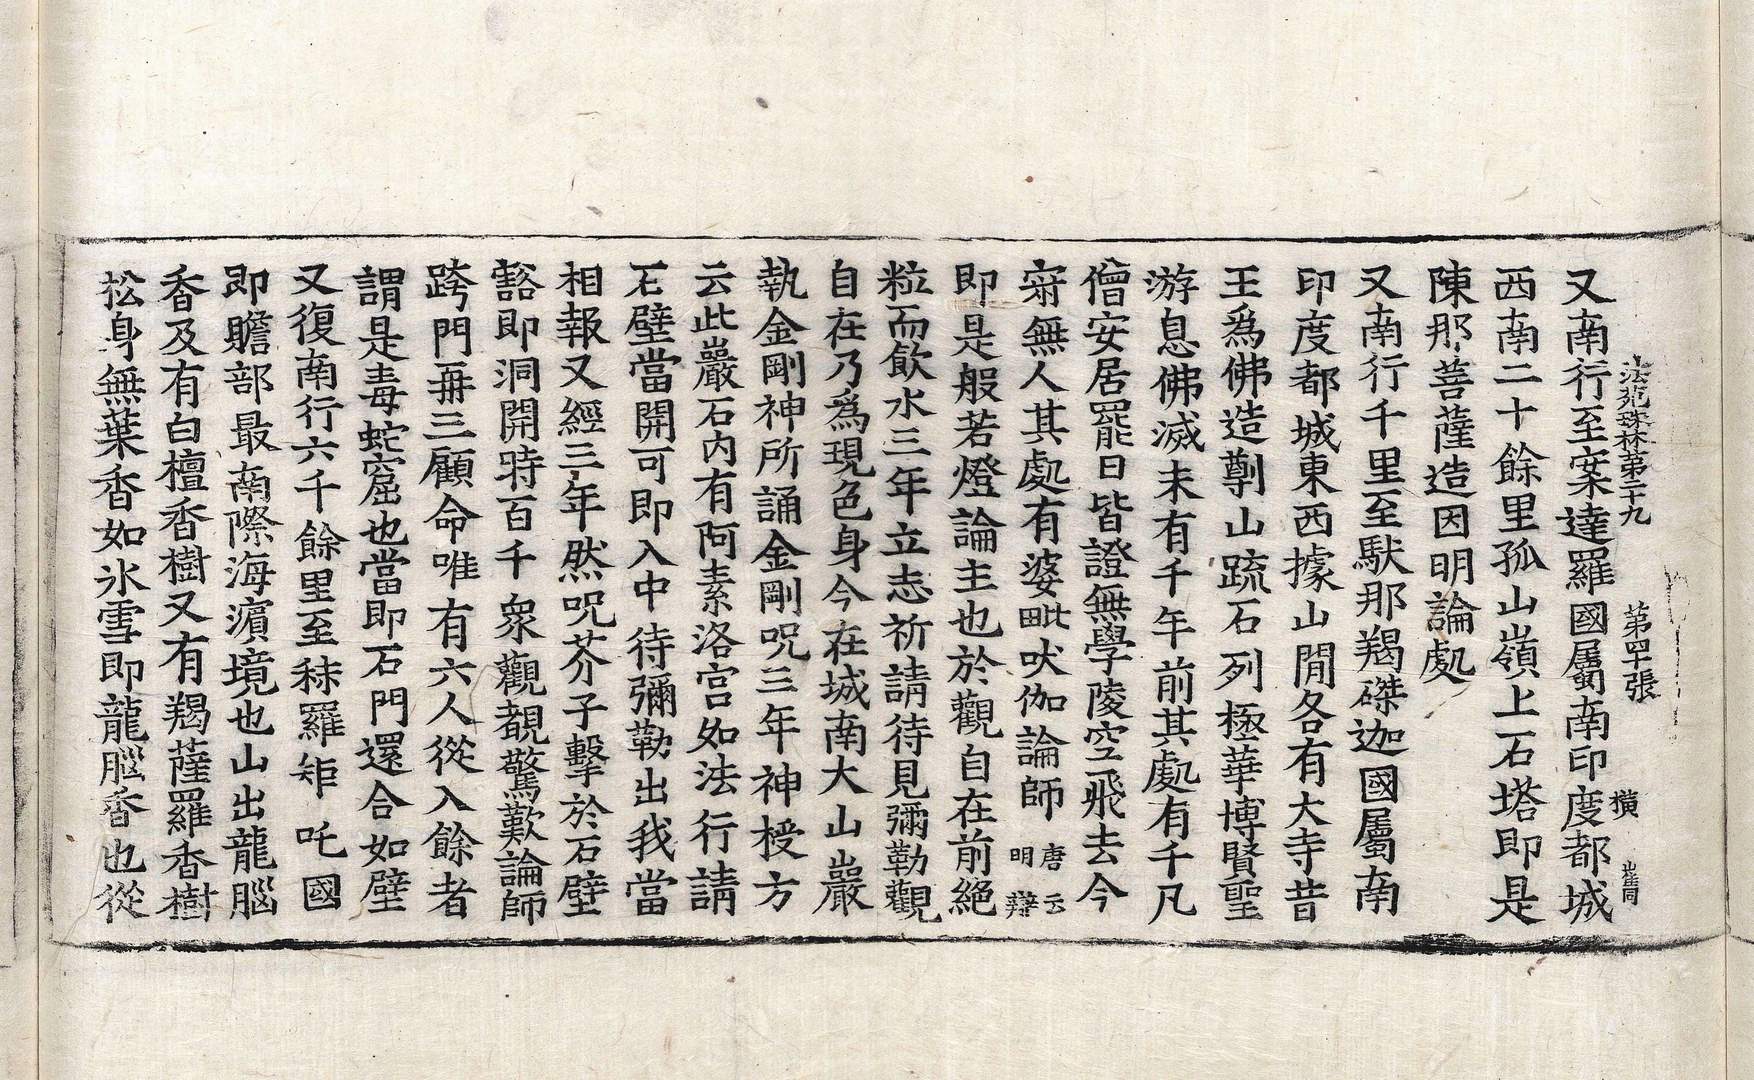 法苑珠林第二十九　第四十張　横　崔同
又南行至案達羅國屬南印度都城
西南二十餘里孤山嶺上石塔即是
陳那菩薩造因明論處
又南行千里至馱那羯磔迦國屬南
印度都城東西據山閒各有大寺昔
王爲佛造𠜇山疏石列極華博賢聖
游息佛滅未有千年前其處有千凡
僧安居罷日皆證無學陵空飛去今
𡨥無人其處有婆毗吠伽論師唐云明辯
即是般若燈論主也於觀自在前絶
粒而飲水三年立志祈請待見彌勒觀
自在乃爲現色身今在城南大山巖
執金剛神所誦金剛呪三年神授方
云此巖石内有阿素洛宮如法行請
石壁當開可即入中待彌勒出我當
相報又經三年然呪芥子擊於石壁
豁即洞開時百千衆觀覩驚歎論師
跨門再三顧命唯有六人從入餘者
謂是毒蛇窟也當即石門還合如壁
又復南行六千餘里至秣羅矩吒國
即瞻部最南際海濵境也山出龍腦
香及有白檀香樹又有羯薩羅香樹
松身無葉香如氷雪即龍腦香也從